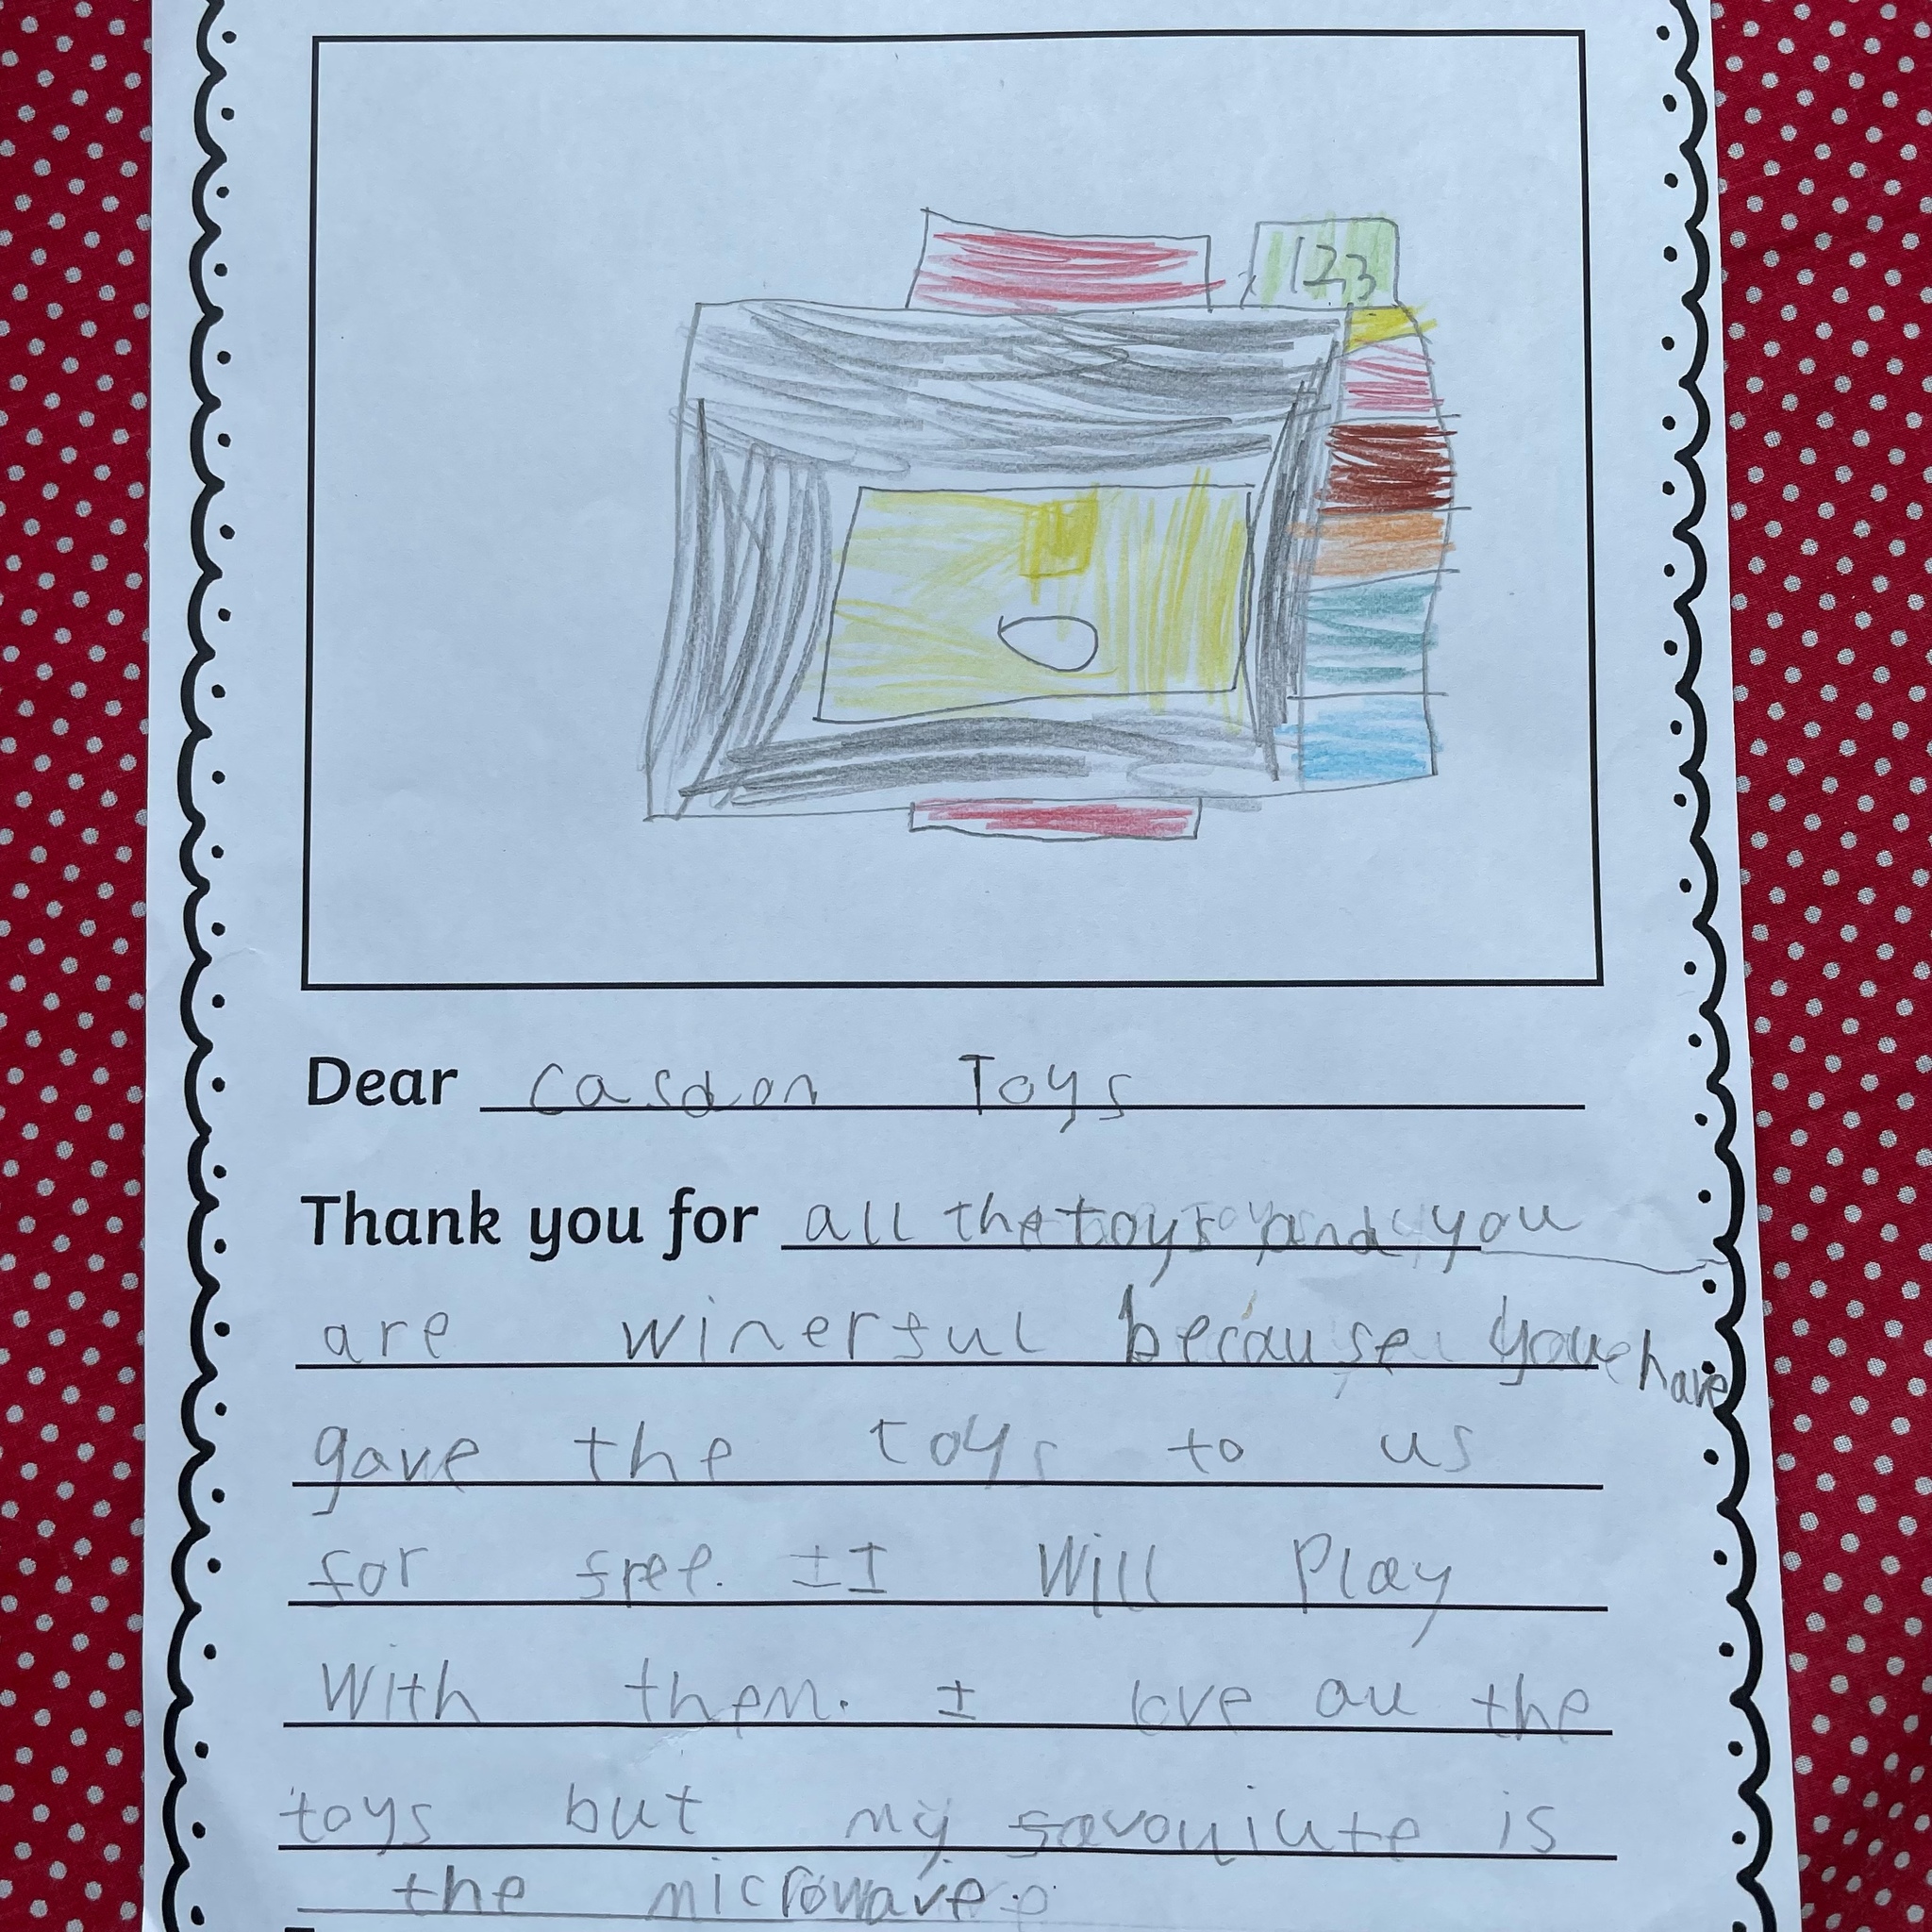 123
Dear Casdon Toys
Thank you for all the toys and you
are winerful because you have
gave the toys to us
for free. I I will play
with them. I love all the
toys but my favouiute is
the microwave.